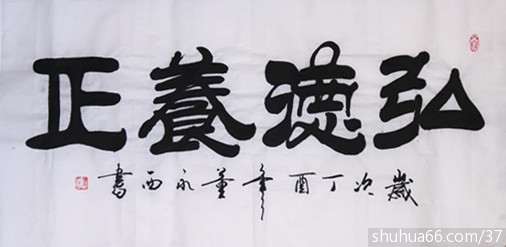 弘德養正
歲次丁酉年董永西書
shuhua66.com/37